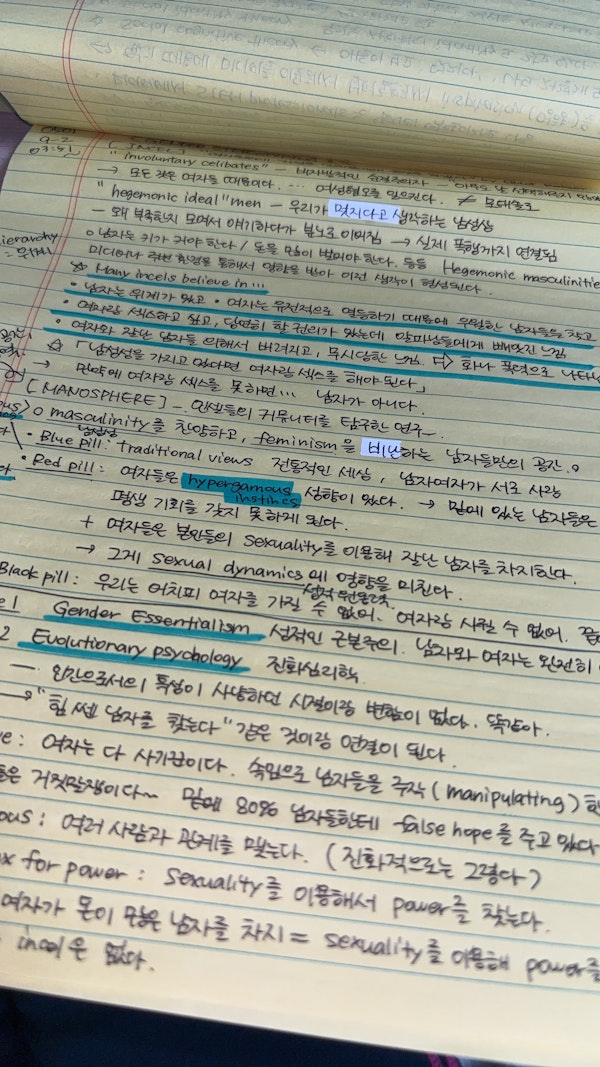 "involuntary celibates" – 비자발적인 순결주의자 –
→ 모든 것은 여자들 때문이다. … 여성혐오를 일으킨다. ≠ 모태솔로
"hegemonic ideal" men – 우리가 멋지다고 생각하는 남성상
– 왜 부족한지 모여서 얘기하다가 분노로 이어짐 → 실제 폭행까지 연결됨
hierarchy
o 남자는 키가 커야 한다 / 돈을 많이 벌어야 한다. 등등 Hegemonic masculinities
= 위계
미디어나 주변 환경을 통해서 영향을 받아 이런 생각이 형성된다.
☆ Many incels believe in …
• 남자는 위계가 있고 • 여자는 유전적으로 열등하기 때문에 우월한 남자들을 찾고
• 여자랑 섹스하고 싶고, 당연히 할 권리가 있는데 알파메일들에게 빼앗긴 느낌
• 여자와 잘난 남자들 의해서 버려지고, 무시당한 느낌. ⇨ 화나 폭력으로 나타남
☆「남성성을 가지고 있다면 여자랑 섹스를 해야 된다」
→ 만약에 여자랑 섹스를 못하면… 남자가 아니다.
[MANOSPHERE] – 인셀들의 커뮤니티를 탐구한 연구
o masculinity를 찬양하고, feminism을 비난하는 남자들만의 공간.
남성성
• Blue pill: traditional views 전통적인 세상, 남자여자가 서로 사랑
• Red pill: 여자들은 hypergamous instincs 성향이 있다. → 밑에 있는 남자들은
평생 기회를 갖지 못하게 된다.
+ 여자들은 본인들의 sexuality를 이용해 잘난 남자를 차지한다.
→ 그게 sexual dynamics에 영향을 미친다.
Black pill: 우리는 어차피 여자를 가질 수 없어. 여자랑 사귈 수 없어.
1 Gender Essentialism 성적인 근본주의. 남자와 여자는 완전히
2 Evolutionary psychology 진화심리학
— 인간으로서의 특성이 사냥하던 시절이랑 변함이 없다. 똑같아.
→ "힘 쎈 남자를 찾는다" 같은 것이랑 연결이 된다.
: 여자는 다 사기꾼이다. 속임으로 남자들을 주작(manipulating)
들은 거짓말쟁이다~ 밑에 80% 남자들한테 false hope를 주고 있다
: 여러 사람과 관계를 맺는다. (진화적으로는 그렇다)
for power: sexuality를 이용해서 power를 찾는다.
여자가 돈이 많은 남자를 차지 = sexuality를 이용해 power를
incel은 없다.